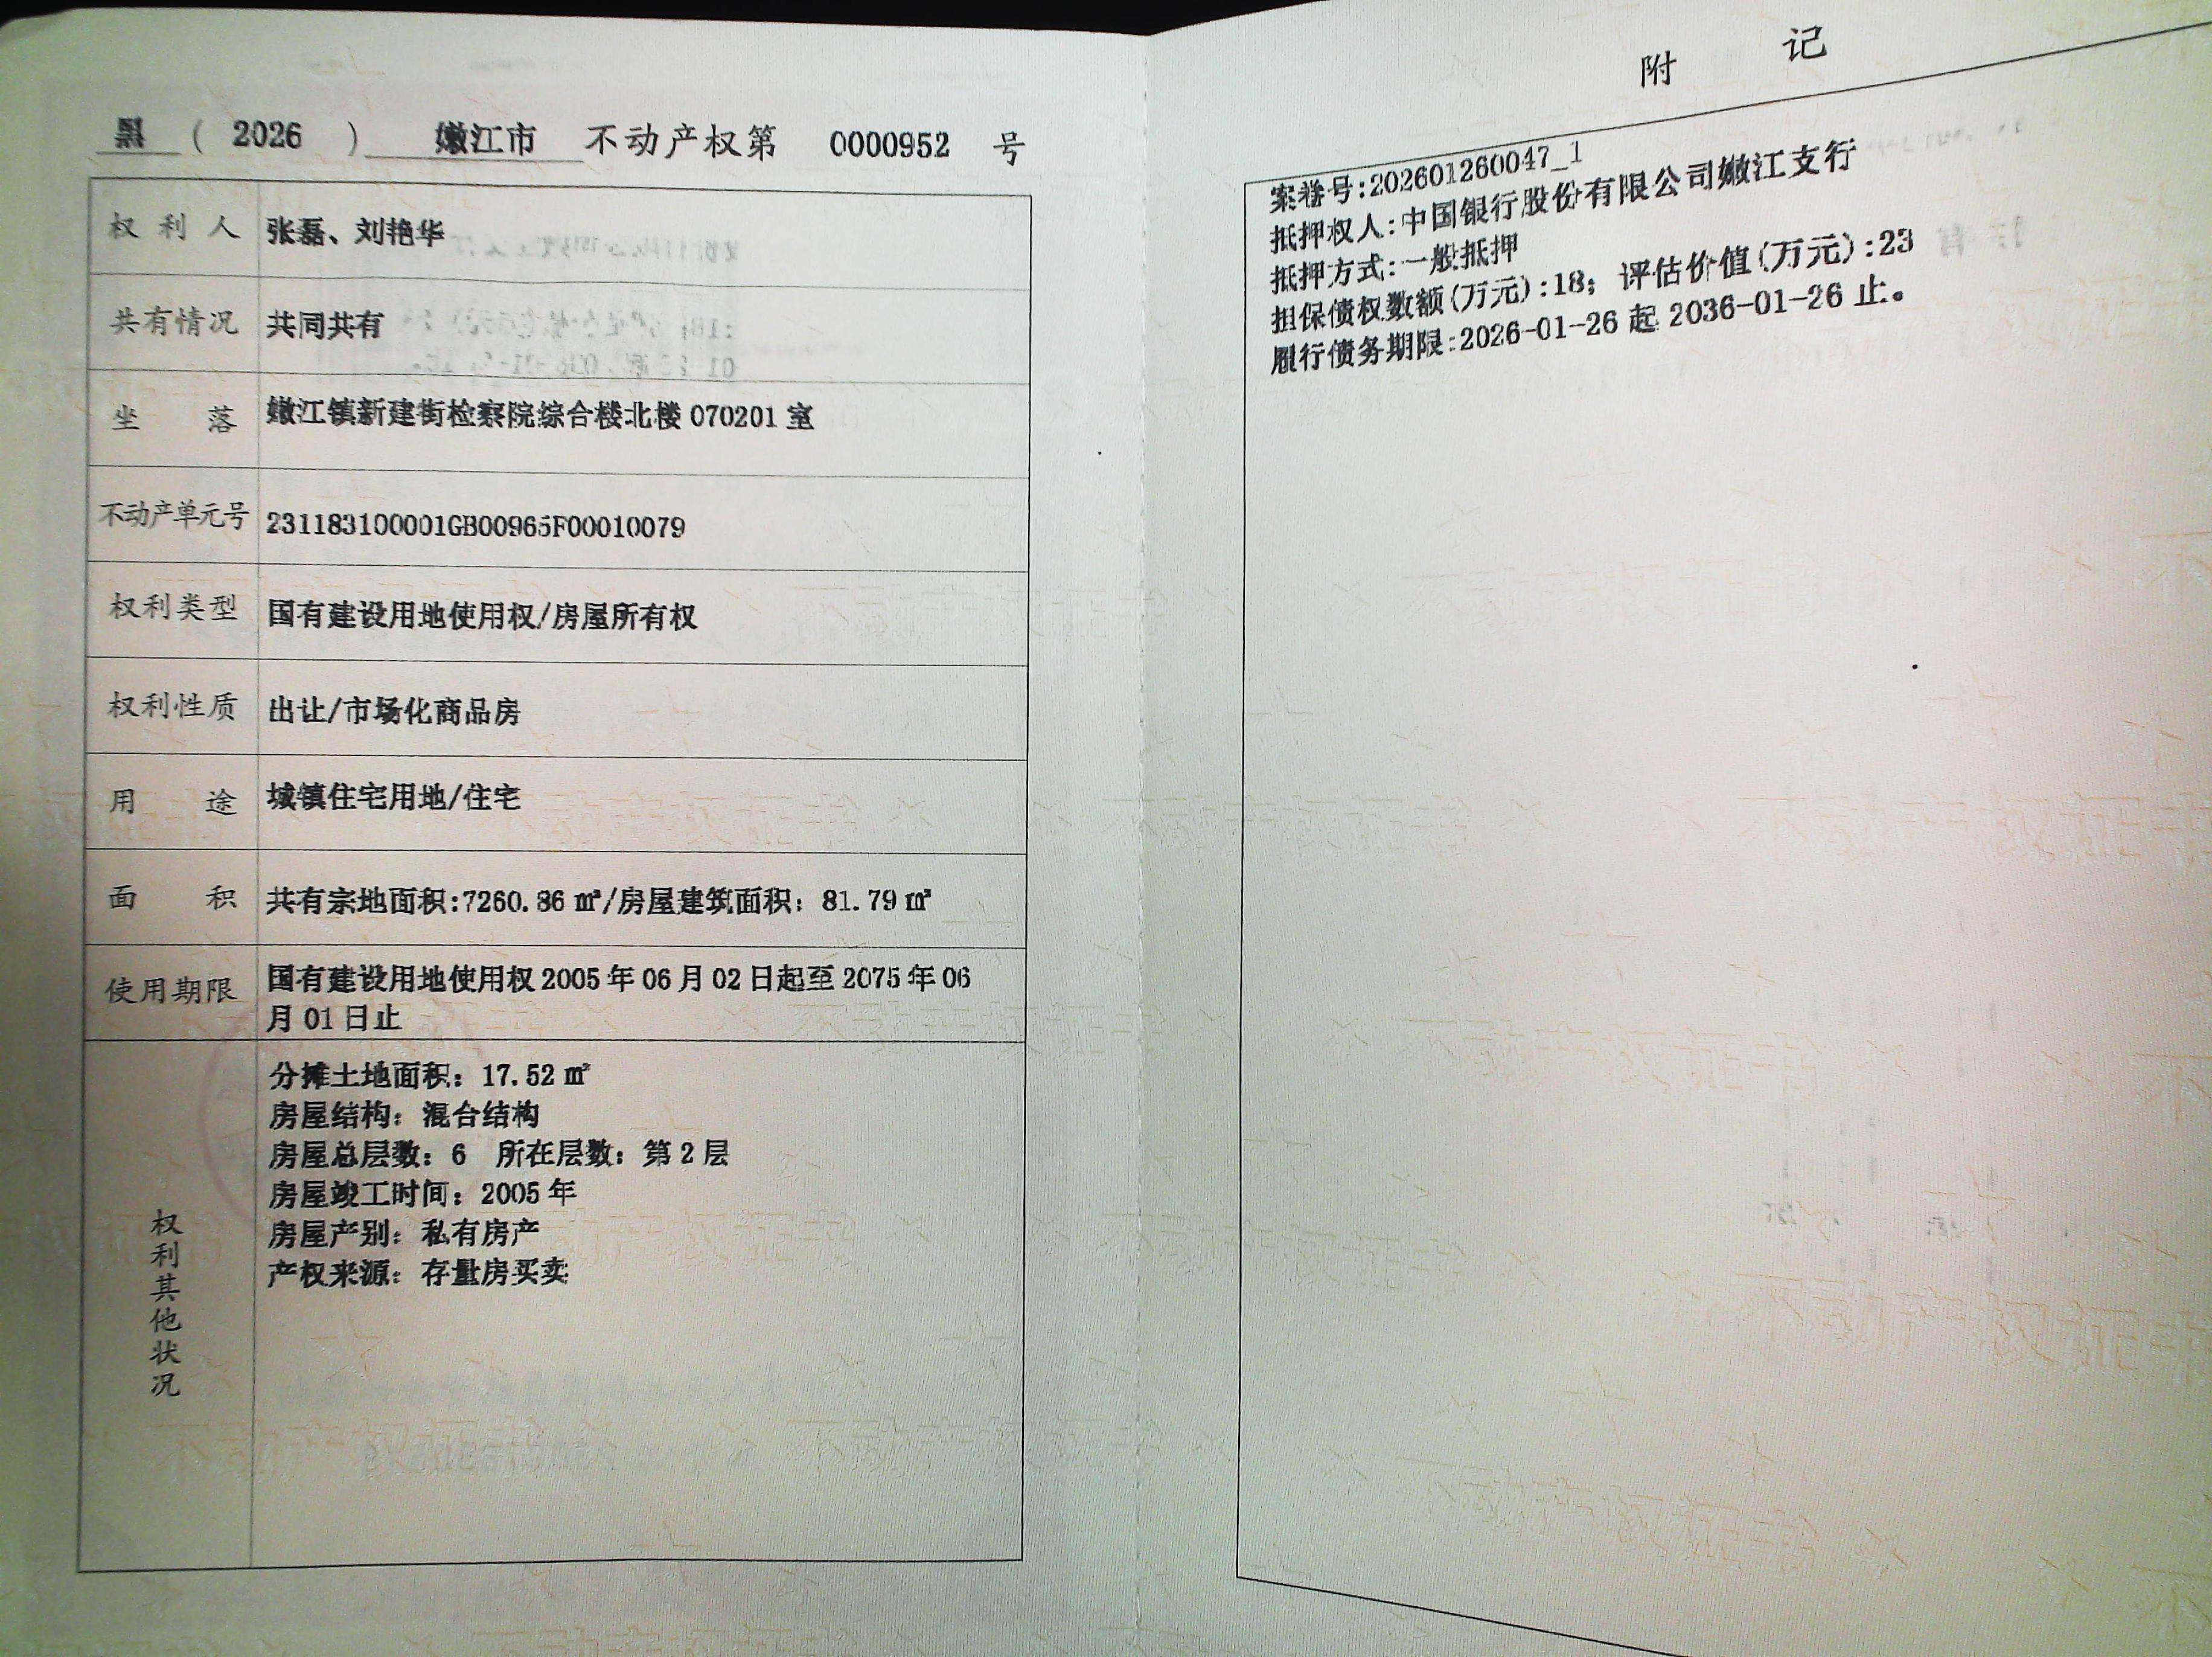 黑 ( 2026 ) 嫩江市 不动产权第 0000952 号
权利人 张磊、刘艳华
共有情况 共同共有
坐落 嫩江镇新建街检察院综合楼北楼 070201 室
不动产单元号 231183100001GB00965F00010079
权利类型 国有建设用地使用权/房屋所有权
权利性质 出让/市场化商品房
用途 城镇住宅用地/住宅
面积 共有宗地面积:7260.86 ㎡/房屋建筑面积: 81.79 ㎡
使用期限 国有建设用地使用权 2005 年 06 月 02 日起至 2075 年 06
月 01 日止
权利其他状况
分摊土地面积: 17.52 ㎡
房屋结构: 混合结构
房屋总层数: 6 所在层数: 第 2 层
房屋竣工时间: 2005 年
房屋产别: 私有房产
产权来源: 存量房买卖
附 记
案卷号:202601260047_1
抵押权人:中国银行股份有限公司嫩江支行
抵押方式:一般抵押
担保债权数额(万元):18; 评估价值(万元):23
履行债务期限:2026-01-26 起 2036-01-26 止。